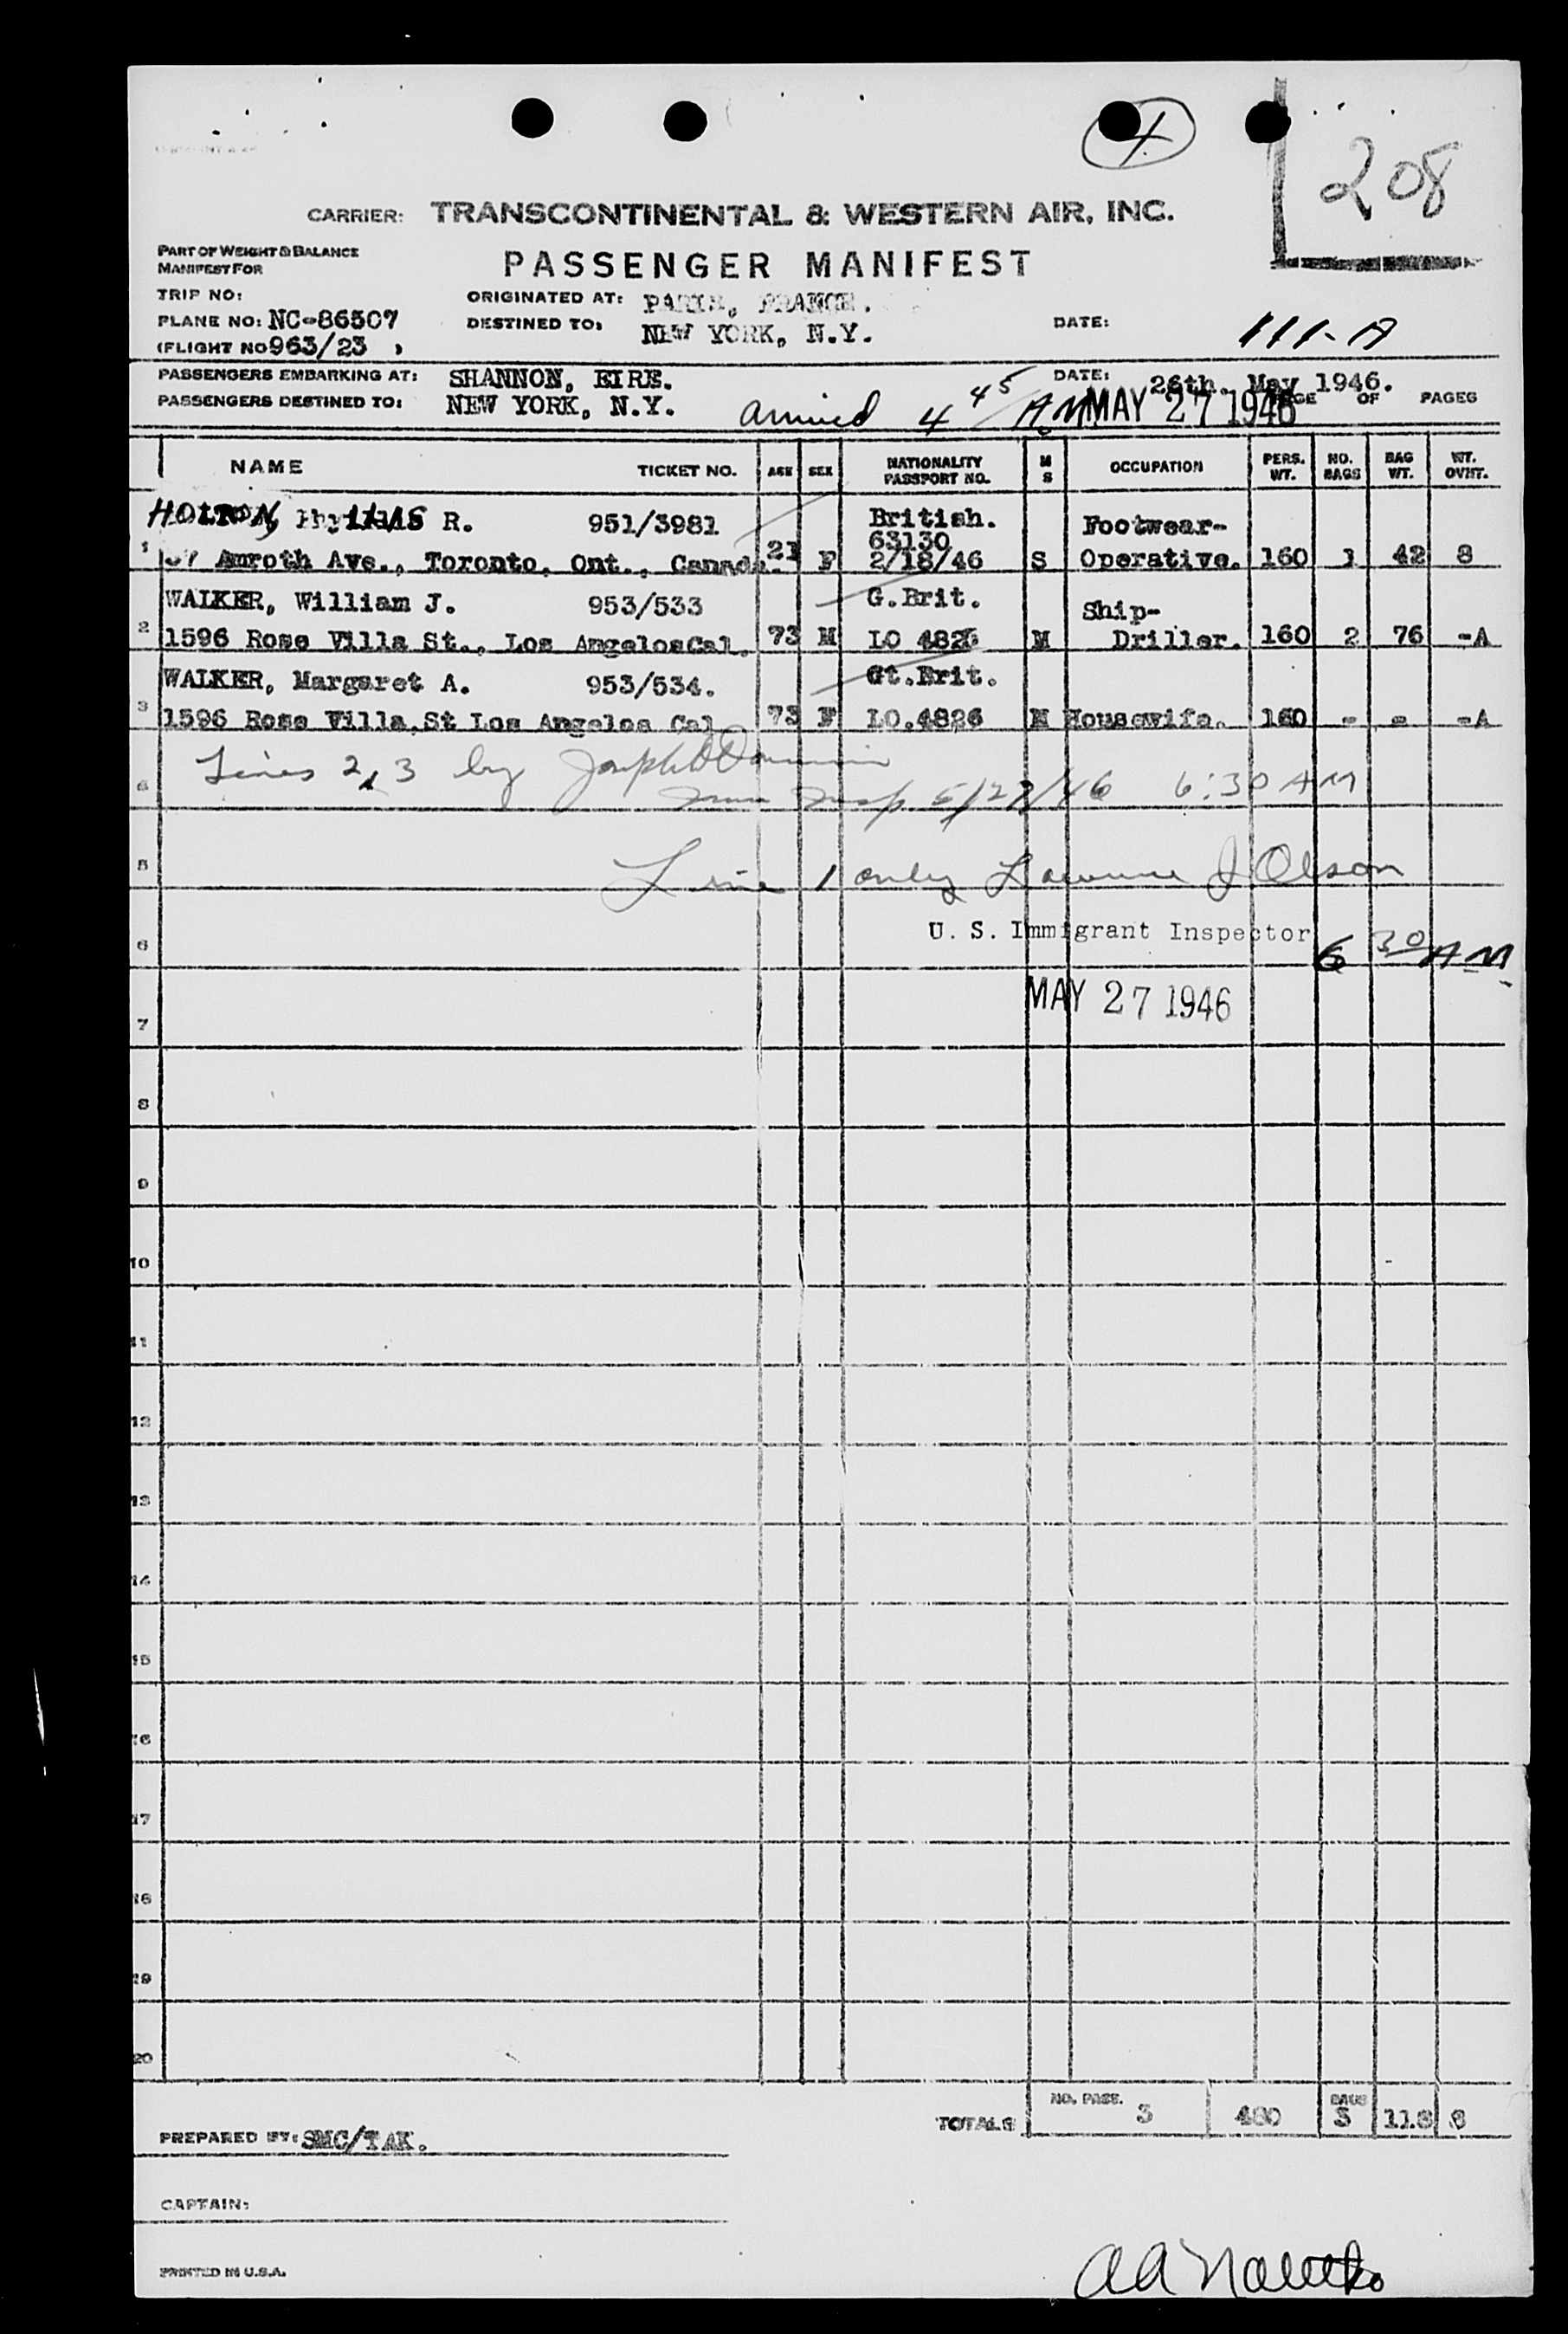 208
CARRIER: TRANSCONTINENTAL & WESTERN AIR, INC.
PART OF WEIGHT & BALANCE
MANIFEST FOR
PASSENGER MANIFEST
TRIP NO:
ORIGINATED AT: PARIS, FRANCE.
PLANE NO: NC-86507
DESTINED TO: NEW YORK, N.Y.
DATE:
111-A
(FLIGHT NO 963/23 )
PASSENGERS EMBARKING AT: SHANNON, EIRE.
DATE: 26th. May 1946.
PASSENGERS DESTINED TO: NEW YORK, N.Y.
arrived 4 45 A.M. MAY 27 1946
PAGE OF PAGES
NAME TICKET NO. AGE SEX NATIONALITY PASSPORT NO. M S OCCUPATION PERS. WT. NO. BAGS BAG WT. WT. OVHT.
HOLTON, Phyllis R. 951/3981 British. Footwear-
63130
1 37 Amroth Ave., Toronto, Ont., Canada. 21 F 2/18/46 S Operative. 160 1 42 8
WALKER, William J. 953/533 G.Brit. Ship-
2 1596 Rose Villa St., Los AngelosCal. 73 M LO 4826 M Driller. 160 2 76 -A
WALKER, Margaret A. 953/534. Gt.Brit.
3 1596 Rose Villa.St Los Angelos Cal 73 F LO.4826 M Housewife. 160 - - -A
Lines 2, 3 by Joseph
Imm Insp 5/27/46 6:30 AM
5
Line 1 only Lawrence J Olson
6
U. S. Immigrant Inspector
6 30 AM
MAY 27 1946
7
8
9
10
11
12
13
14
15
16
17
18
19
20
TOTALS NO. PASS. 3 480 BAGS 3 118 8
PREPARED BY: SMC/TAK.
CAPTAIN:
PRINTED IN U.S.A.